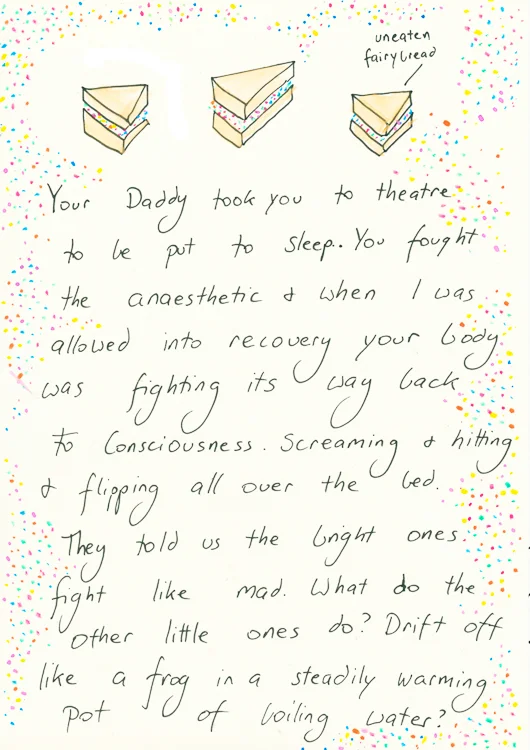 uneaten
fairybread
Your Daddy took you to theatre
to be put to sleep.. You fought
the anaesthetic & when I was
allowed into recovery your body
was fighting its way back
to consciousness. Screaming & hitting
& flipping all over the bed.
They told us the bright ones.
fight like mad. What do the
other little ones do? Drift off
like a frog in a steadily warming
pot of boiling water?